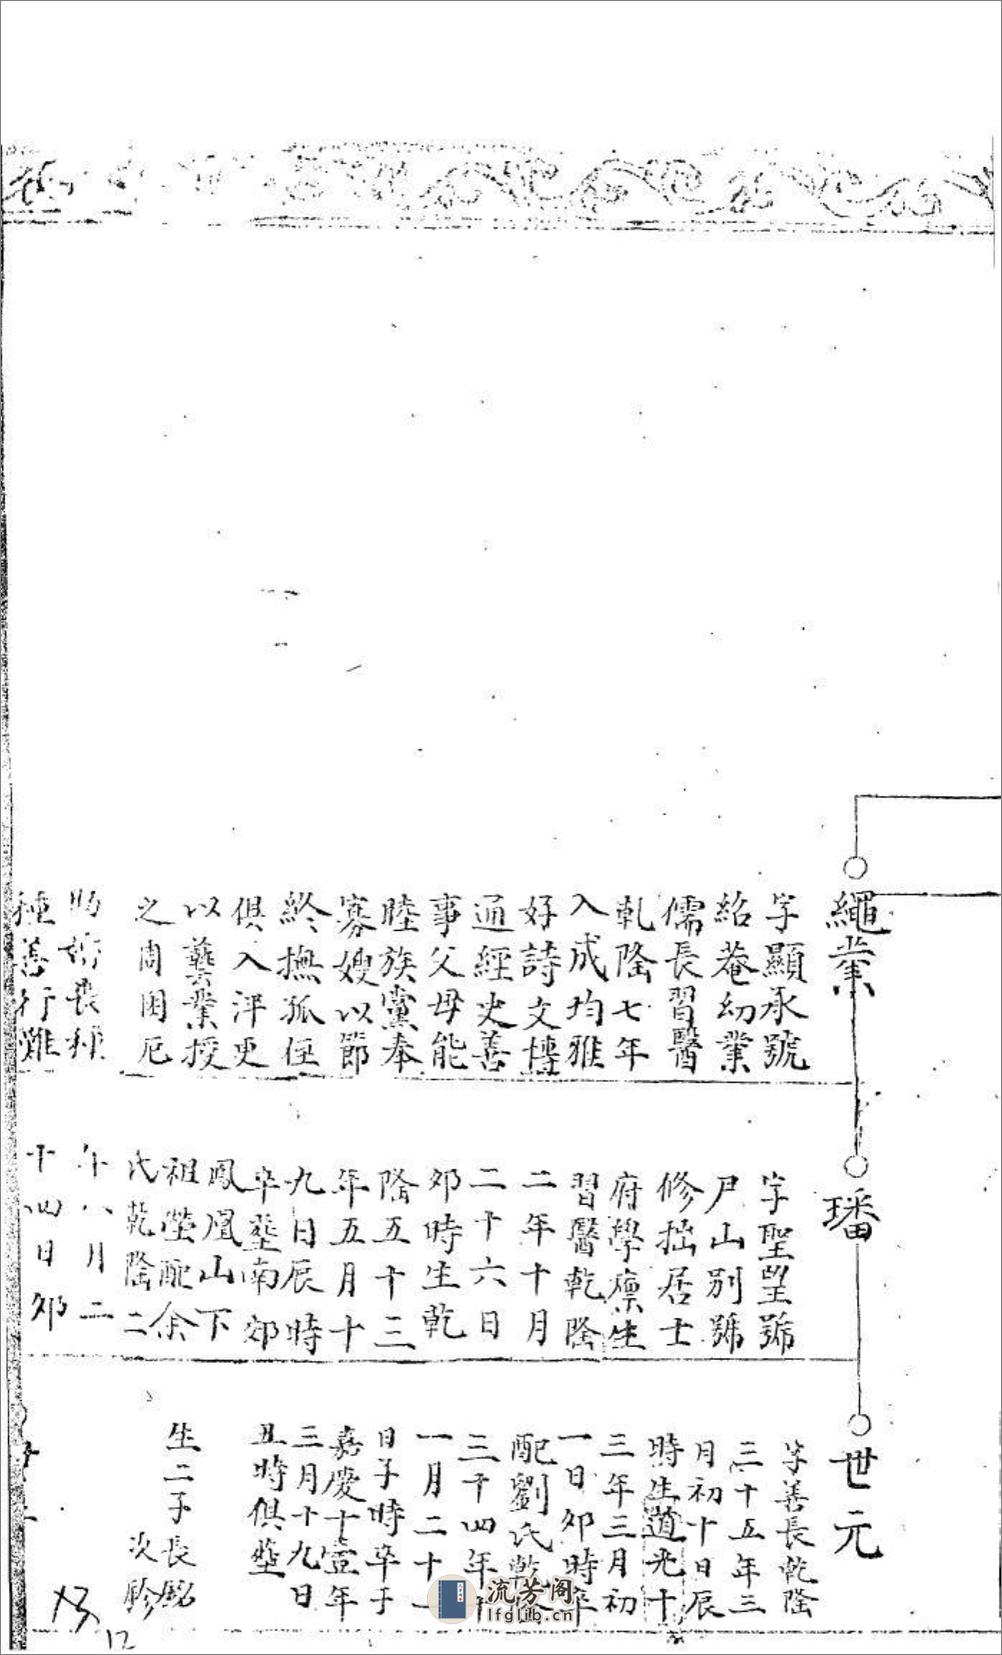 繩業
字顯承號
紹菴幼業
儒長習醫
乾隆七年
入成均雅
好詩文博
通經史善
事父母能
睦族黨奉
寡嫂以節
終撫孤侄
俱入泮更
以藝業授
之周困厄
喪
種善行難
璠
字聖望號
尸山別號
修拙居士
府學廩生
習醫乾隆
二年十月
二十六日
卯時生乾
隆五十三
年五月十
九日辰時
卒塟南郊
鳳凰山下
祖塋配余
氏乾隆二
年八月二
十四日卯
世元
字善長乾隆
三十五年三
月初十日辰
時生道光十
三年三月初
一日卯時卒
配劉氏乾
三十四年十
一月二十一
日子時卒于
嘉慶十壹年
三月十九日
丑時俱塟
生二子長銘
次
12
流芳阁
lfglib.cn